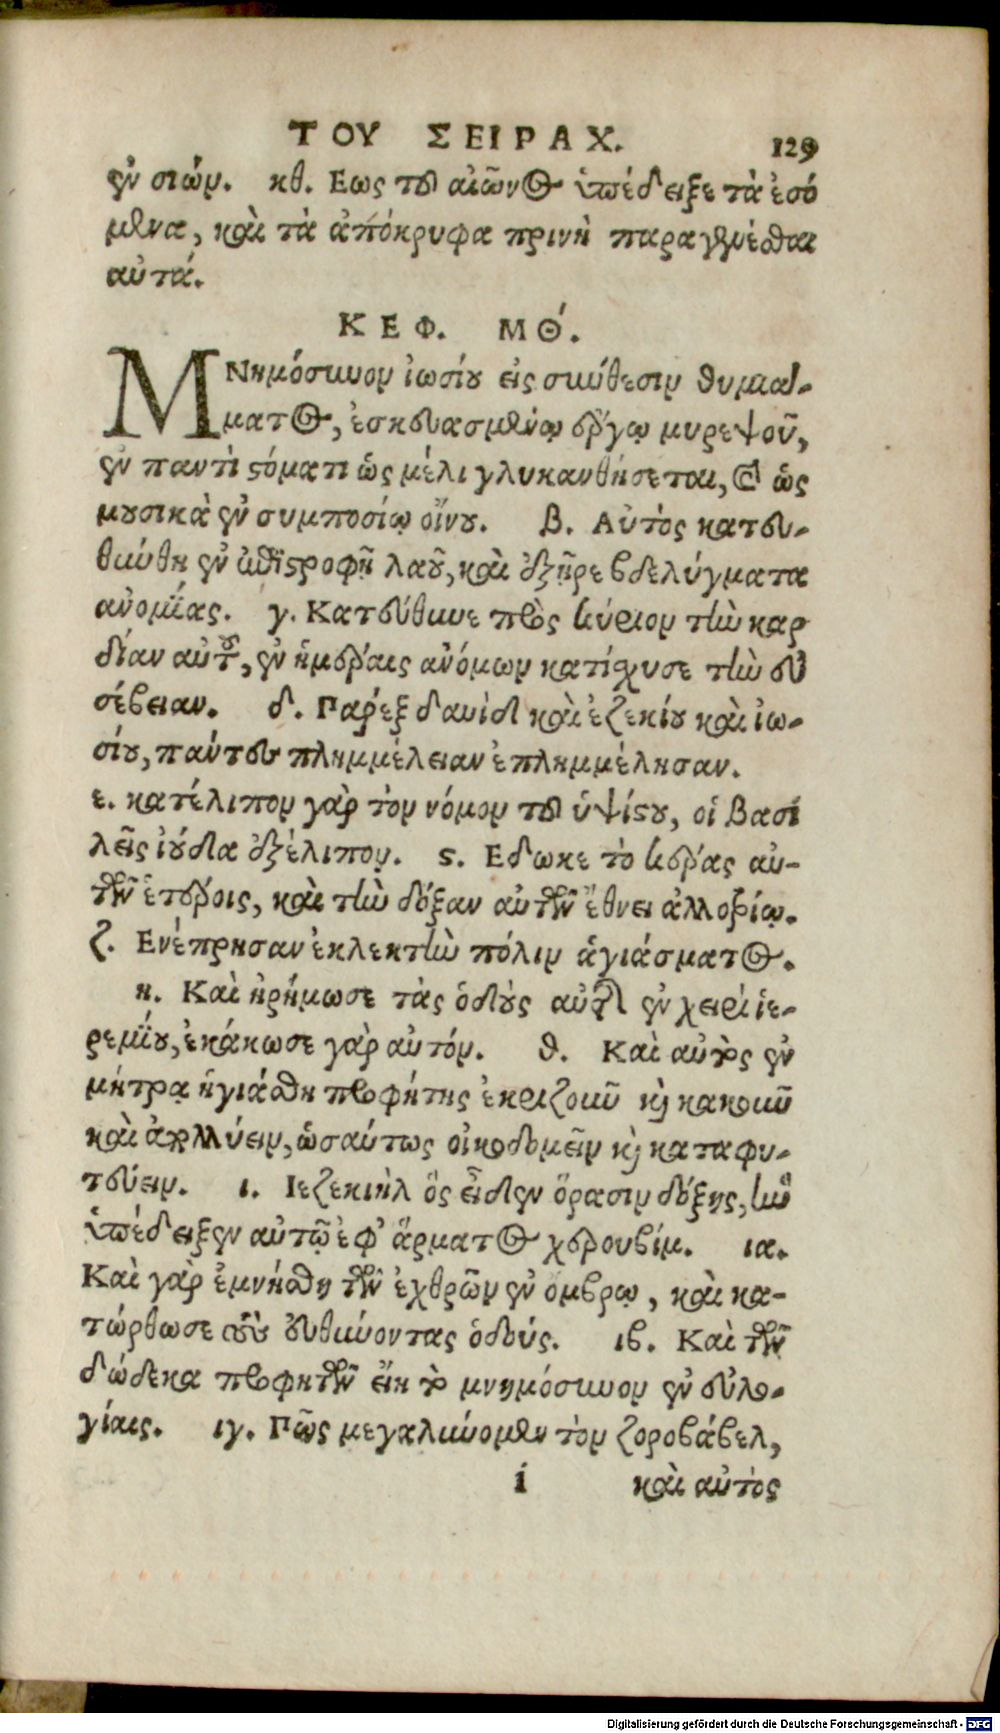 ΤΟΥ ΣΕΙΡΑΧ. 129
ἐν σιών. κθ. Εως τοῦ αἰῶνος ὑπέδειξε τὰ ἐσό
μενα, καὶ τὰ ἀπόκρυφα πρινὴ παραγενέσθαι
αὐτά.
ΚΕΦ. ΜΘ΄.
ΜΝημόσυνον ἰωσίου εἰς σύνθεσιν θυμιά-
ματος, ἐσκευασμένῳ ἔργῳ μυρεψοῦ,
ἐν παντὶ στόματι ὡς μέλι γλυκανθήσεται, καὶ ὡς
μουσικὰ ἐν συμποσίῳ οἴνου. β. Αὐτὸς κατευ-
θύνθη ἐν ἐπιστροφῇ λαοῦ, καὶ ἐξῇρε βδελύγματα
ἀνομίας. γ. Κατεύθυνε πρὸς κύριον τὴν καρ
δίαν αὐτοῦ, ἐν ἡμέραις ἀνόμων κατίχυσε τὴν εὐ
σέβειαν. δ. Παρὲξ δαυὶδ καὶ ἐζεκίου καὶ ἰω-
σίου, πάντες πλημμέλειαν ἐπλημμέλησαν.
ε. κατέλιπον γὰρ τὸν νόμον τοῦ ὑψίστου, οἱ βασι
λεῖς ἰούδα ἐξέλιπον. ϛ. Εδωκε τὸ κέρας αὐ-
τῶν ἑτέροις, καὶ τὴν δόξαν αὐτῶν ἔθνει ἀλλοτρίῳ.
ζ. Ενέπρησαν ἐκλεκτὴν πόλιν ἁγιάσματος.
η. Καὶ ἠρήμωσε τὰς ὁδοὺς αὐτῆς ἐν χειρὶ ἱε-
ρεμίου, ἐκάκωσε γὰρ αὐτόν. θ. Καὶ αὐτὸς ἐν
μήτρᾳ ἡγιάσθη προφήτης ἐκριζοῦν καὶ κακοῦν
καὶ ἀπολλύειν, ὡσαύτως οἰκοδομεῖν καὶ καταφυ-
τεύειν. ι. Ιεζεκιὴλ ὃς εἶδεν ὅρασιν δόξης, ἣν
ὑπέδειξεν αὐτῷ ἐφ’ ἅρματος χερουβίμ. ια.
Καὶ γὰρ ἐμνήσθη τῶν ἐχθρῶν ἐν ὄμβρῳ, καὶ κα-
τώρθωσε τοὺς εὐθύνοντας ὁδούς. ιβ. Καὶ τῶν
δώδεκα προφητῶν εἴη τὸ μνημόσυνον ἐν εὐλο-
γίαις. ιγ. Πῶς μεγαλύνομεν τὸν ζοροβάβελ,
i καὶ αὐτὸς
Digitalisierung gefördert durch die Deutsche Forschungsgemeinschaft - DFG